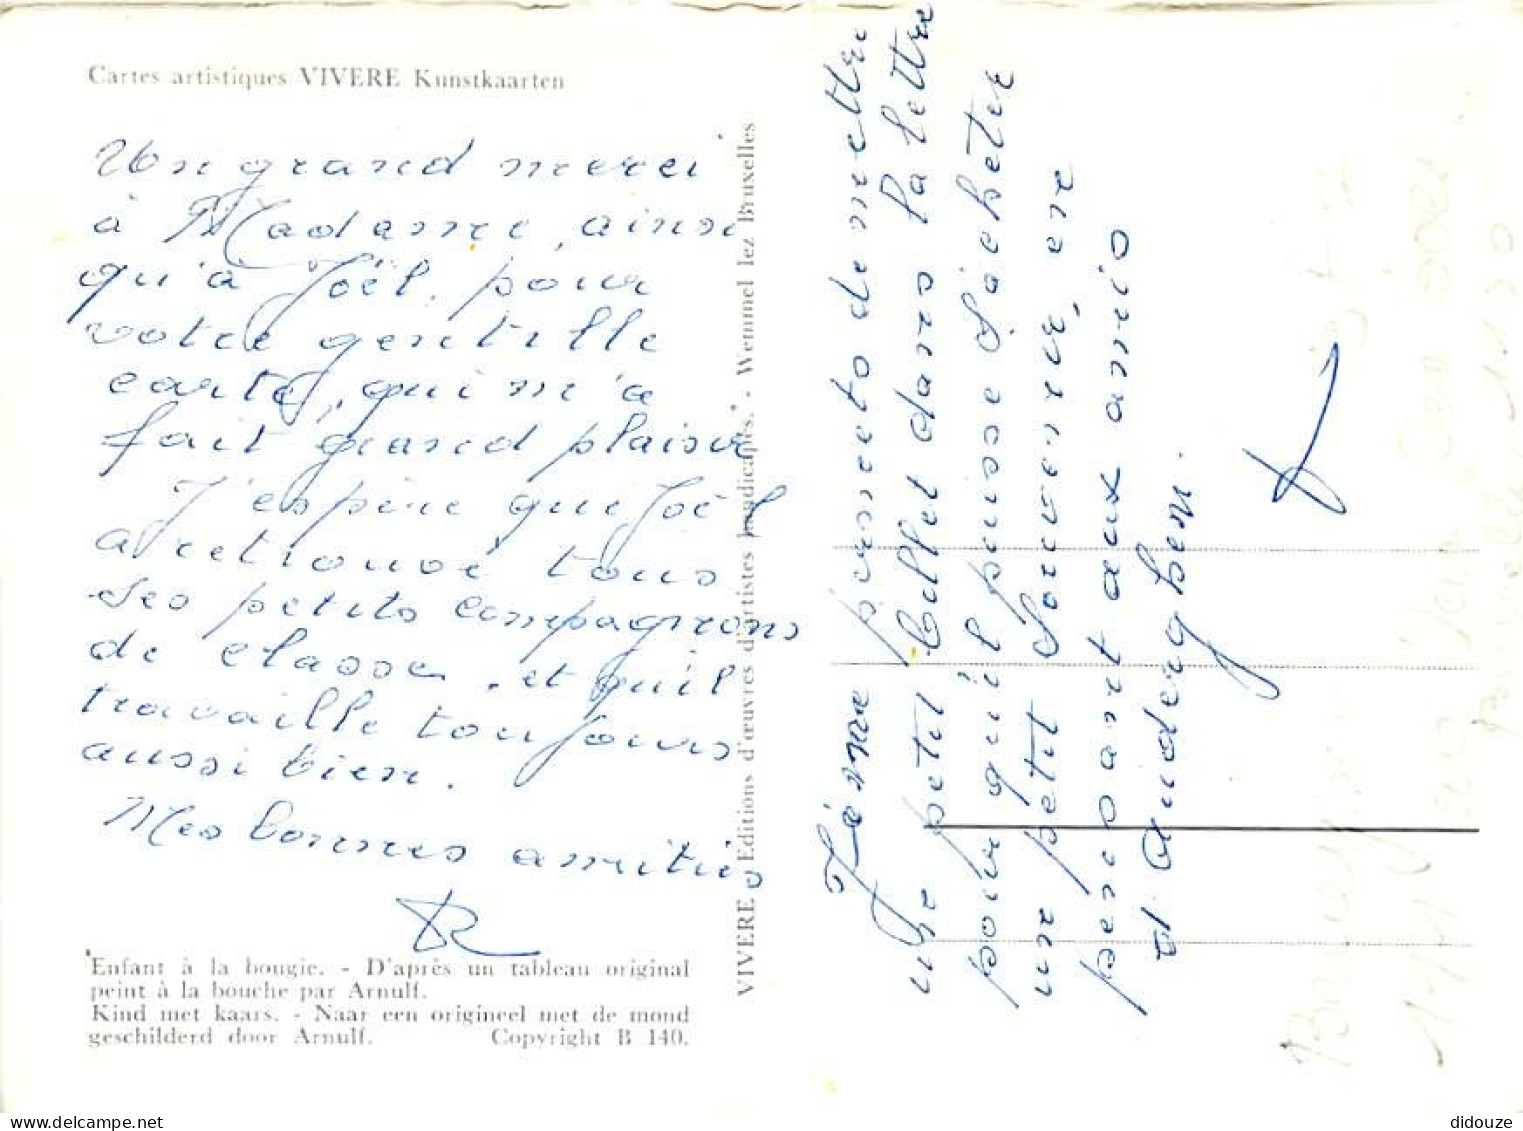 Cartes artistiques VIVERE Kunstkaarten
Un grand merci
à Madame, ainsi
qu'à Joël, pour
votre gentille
carte, qui m'a
fait grand plaisir
J'espère que Joël
a retrouvé tous
ses petits compagnons
de classe, et qu'il
travaille toujours
aussi bien.
Mes bonnes amitiés
Enfant à la bougie. - D'après un tableau original
peint à la bouche par Arnulf.
Kind met kaars. - Naar een origineel met de mond
geschilderd door Arnulf. Copyright B 140.
VIVERE - Editions d'œuvres d'artistes handicapés. - Wemmel lez Bruxelles
J'éme permets de mettre
une petit billet dans la lettre
pour qu'il puisse s'acheter
un petit souvenir, en
pensant aux amis
d'Auderghem.
didouze